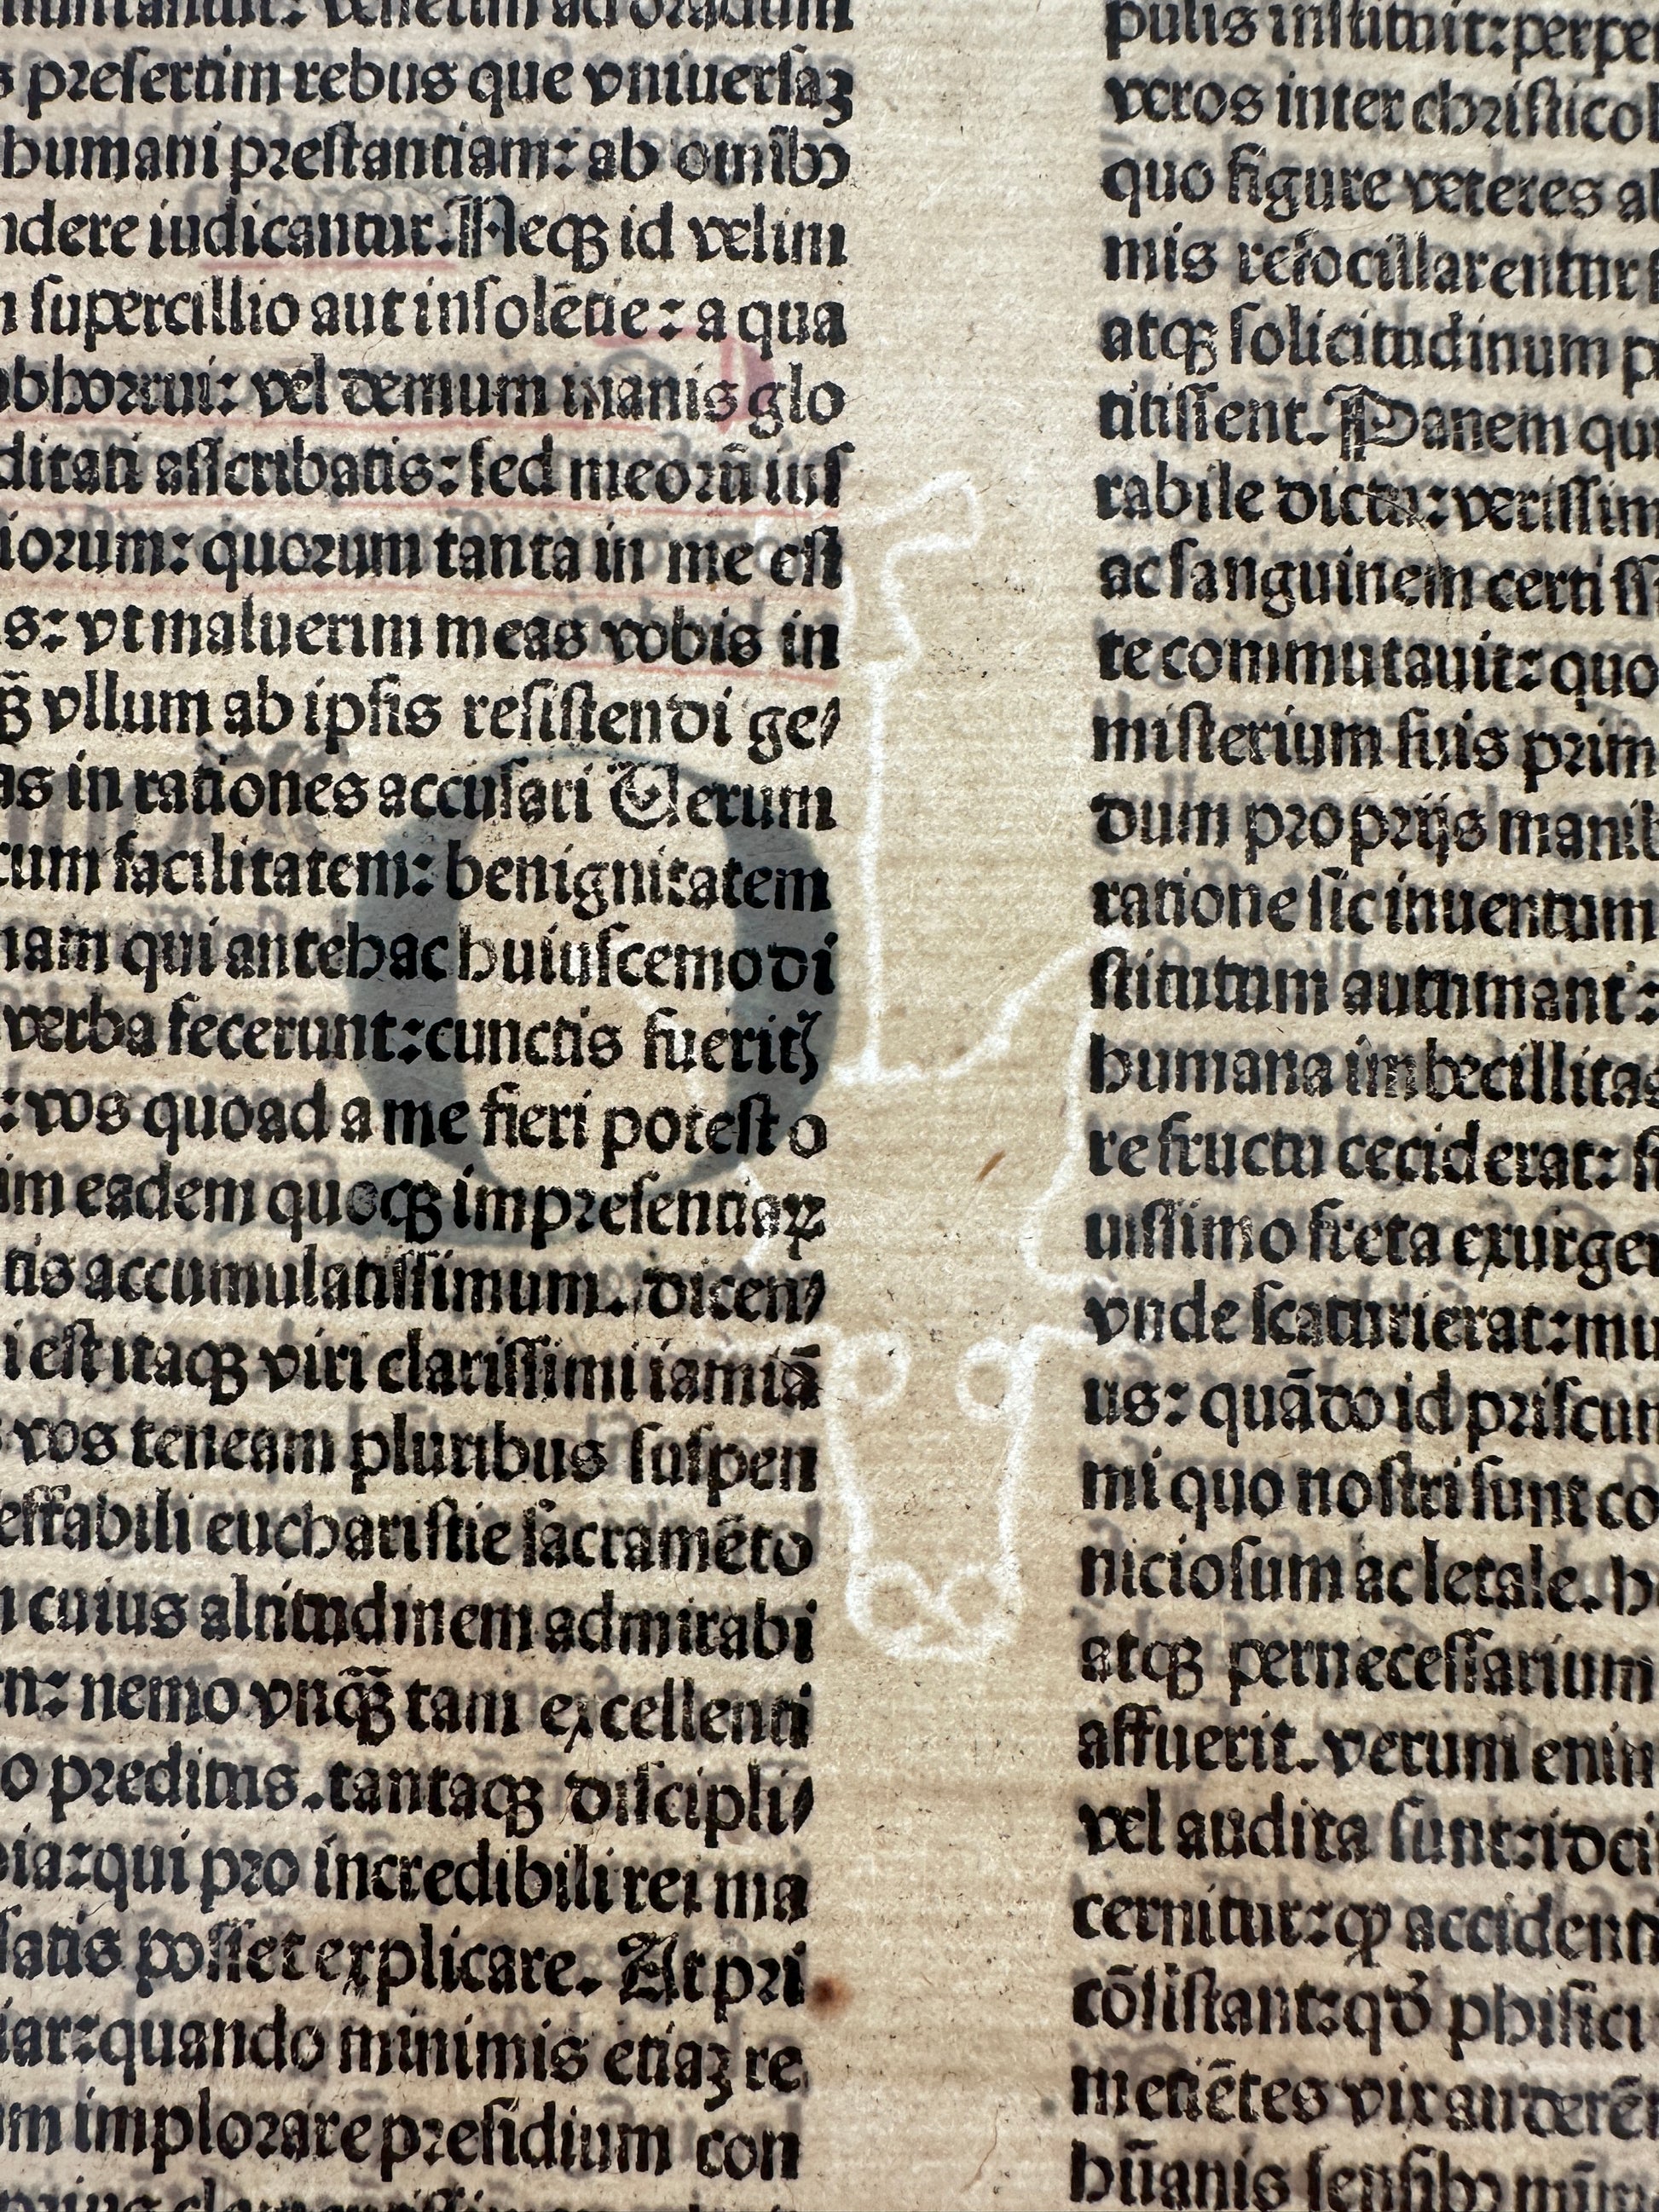 s presertim rebus que vniuersaꝫ
humani prestantiam: ab omībꝰ
ndere iudicantur. Neqꝫ id velim
n supercillio aut insolētie: a qua
bhorrui: vel demum inanis glo
ditati asscribatis: sed meorū iuſ
iorum: quorum tanta in me est
s: vt maluerim meas vobis in
ꝗ̃ vllum ab ipsis resistendi ge⸗
as in rationes accusari Verum
cum facilitatem: benignitatem
nam qui antehac huiuscemodi
verba fecerunt: cunctis fueritꝭ
: vos quoad a me fieri potest o
im eadem quoqꝫ impresentiaꝝ
tis accumulatissimum. dicen⸗
i est itaqꝫ viri clarissimi iamiā
vos teneam pluribus suspen
effabili eucharistie sacramēto
n cuius altitudinem admirabi
n: nemo vnꝗ̃ tam excellenti
o preditus. tantaqꝫ discipli⸗
ia: qui pro incredibili rei ma
satis posset explicare. At pri
iar: quando minimis etiaꝫ re
m implorare presidium con
pulis instituit: perpe
veros inter christicol
quo figure veteres a
mis refocillarentur
atqꝫ solicitudinum p
titissent. Panem qu
rabile dictu: verissim
ac sanguinem certiss
te commutauit: quo
misterium suis prim
dum proprijs manib
ratione sic inuentum
stitutum autumant:
humana imbecillitas
re fructu ceciderat: s
uissimo freta exurge
vnde scaturierat: mu
us: quādo id priscum
mi quo nostri sunt co
niciosum ac letale. h
atqꝫ pernecessarium
affuerit. verum enim
vel audita sunt: idci
cernitur: ꝙ accident
cōsistant: qđ phisici
metiētes vix auderē
hūanis sensibꝰ